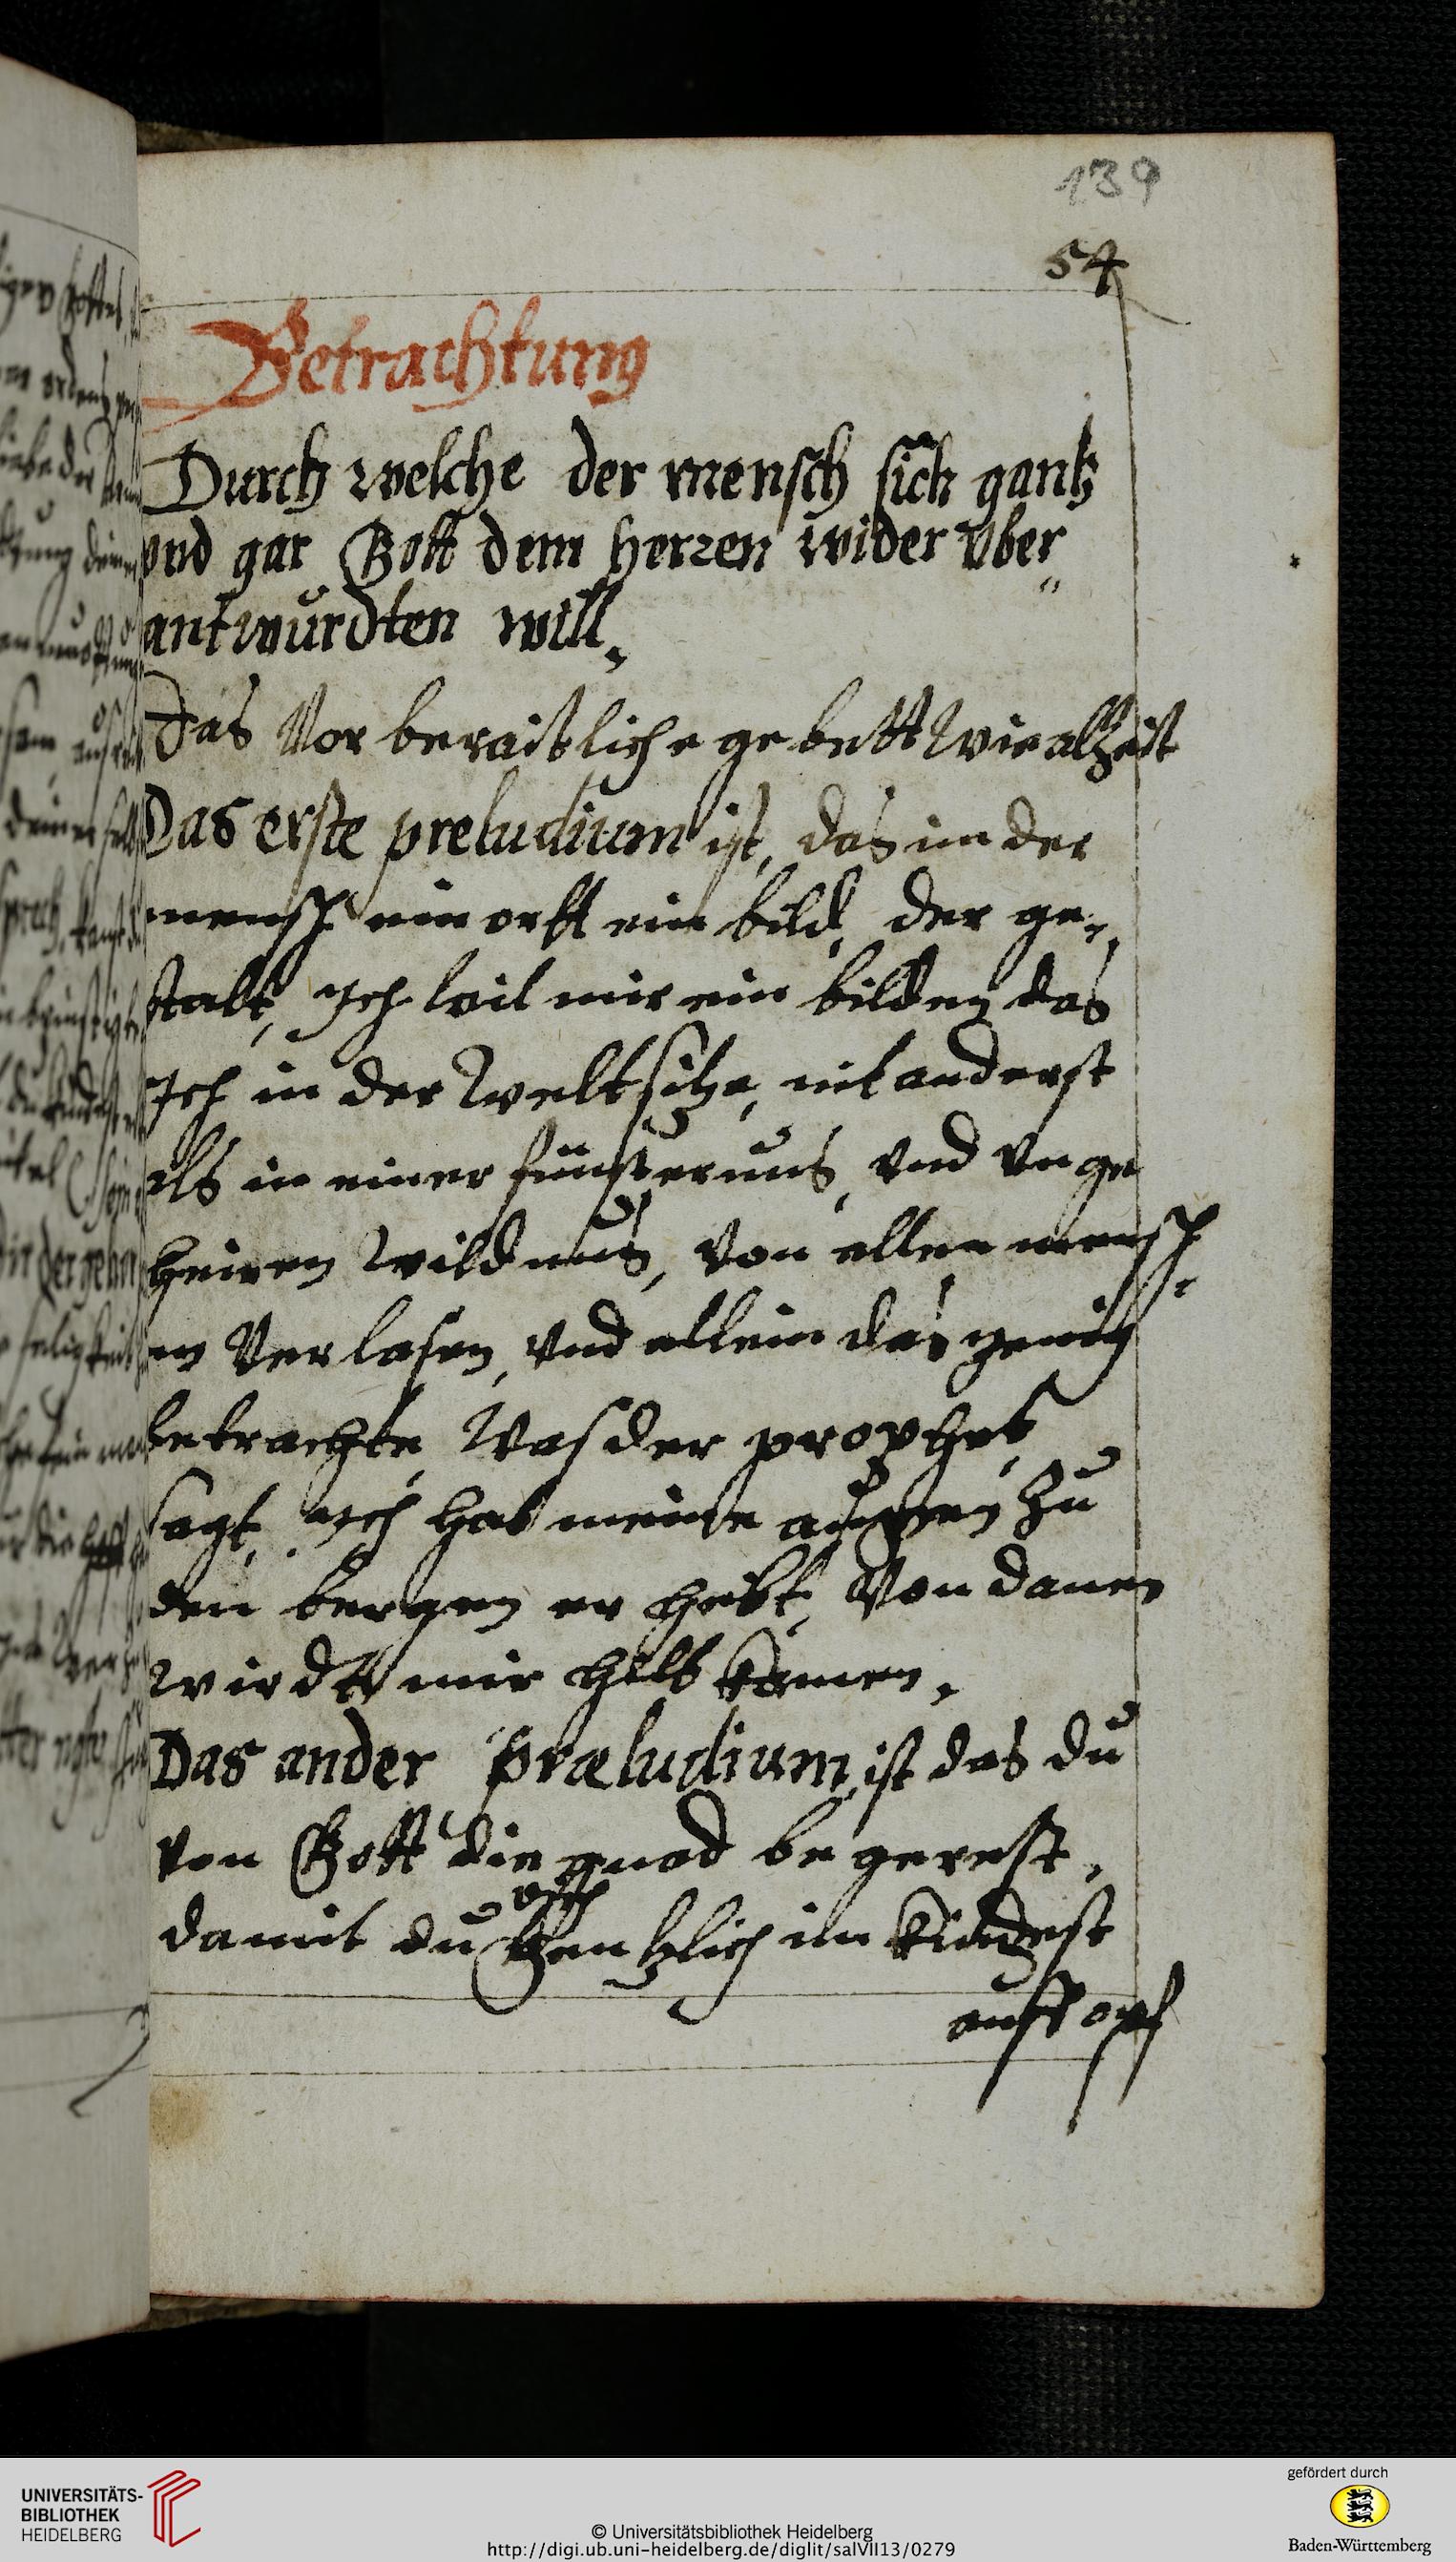 139
54
Betrachtung
Durch welche der mensch sich gantz
vnd gar Gott dem herren wider vber„
antwürdten will.
Das Vor beraitliche gebett wie alzeit
Das erste preludium ist, das im der
mensch ein ortt ein bild, der ge„
stalt, Ich wil mir ein bilden das
Ich in der Welt sitze, nit anderst
als in einer finsternus, vnd vnge
heiren wildnus, von allen mensch„
en verlasen, vnd allein das yenig
betrachte, was der prophet
sagt, Ich hab meine augen zu
den bergen er hebt, Von danen
wirdt mir hilb komen.
Das ander præludium, ist das du
von Gott die gnad begerest,
damit du dich
Gentzlich im kindest
auff opf
UNIVERSITÄTS-
BIBLIOTHEK
HEIDELBERG
© Universitätsbibliothek Heidelberg
http://digi.ub.uni-heidelberg.de/diglit/salVII13/0279
gefördert durch
Baden-Württemberg